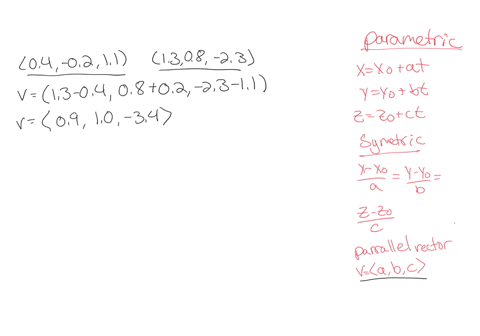 (0.4, -0.2, 1.1) (1.3, 0.8, -2.3)
v=(1.3-0.4, 0.8+0.2, -2.3-1.1)
v=⟨0.9, 1.0, -3.4⟩
parametric
x=x₀+at
y=y₀+bt
z=z₀+ct
Symetric
x-x₀/a = y-y₀/b =
z-z₀/c
parralel vector
v=⟨a,b,c⟩